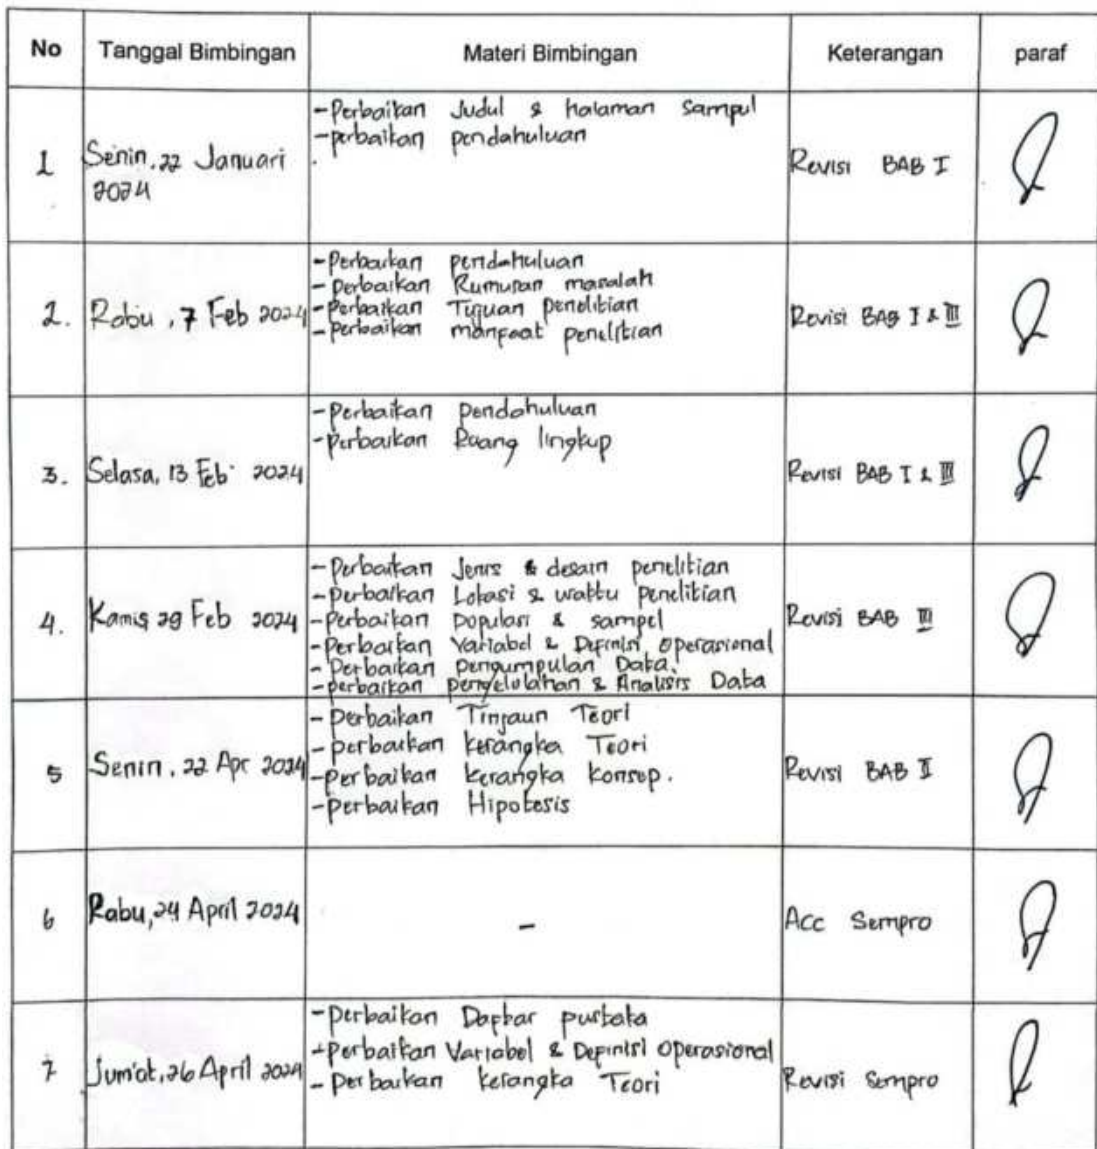 No Tanggal Bimbingan Materi Bimbingan Keterangan paraf
1 Senin, 22 Januari 2024 Revisi BAB I
-Perbaikan Judul & halaman Sampul
-perbaikan pendahuluan
2. Rabu, 7 Feb 2024 Revisi BAB I & III
-Perbaikan pendahuluan
-Perbaikan Rumusan masalah
-Perbaikan Tujuan penelitian
-Perbaikan manfaat penelitian
3. Selasa, 13 Feb 2024 Revisi BAB I & III
-Perbaikan pendahuluan
-Perbaikan Ruang lingkup
4. Kamis 29 Feb 2024 Revisi BAB III
-Perbaikan Jenis & desain penelitian
-Perbaikan Lokasi & waktu penelitian
-Perbaikan populasi & sampel
-Perbaikan Variabel & Definisi Operasional
-Perbaikan pengumpulan Data
-perbaikan pengelolahan & Analisis Data
5 Senin, 22 Apr 2024 Revisi BAB II
-Perbaikan Tinjaun Teori
-perbaikan kerangka Teori
-perbaikan kerangka konsep.
-perbaikan Hipotesis
6 Rabu, 24 April 2024 - Acc Sempro
7 Jum'at, 26 April 2024 Revisi Sempro
-Perbaikan Daftar pustaka
-perbaikan Variabel & Definisi Operasional
-Perbaikan kerangka Teori